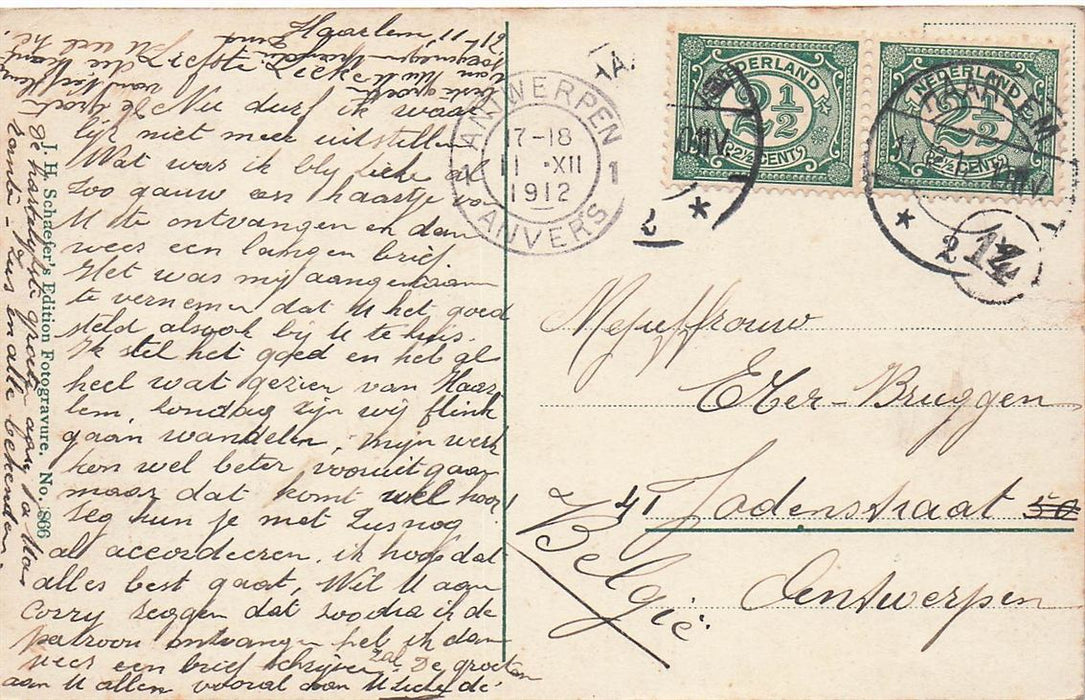 Haarlem, 11-12
Liefste Lieke
Nu durf ik waar
lijk niet meer uitstellen
Wat was ik blij Lieke al
zoo gauw een kaartje van
U te ontvangen en dan
weer een langen brief
Het was mij aangenaam
te vernemen dat U het goed
steld alsook bij U te huis.
Ik stel het goed en heb al
heel wat gezien van Haar
lem, zondag zijn wij flink
gaan wandelen, mijn werk
kon wel beter vooruit gaan
maar dat komt wel hoor!
Zeg kun je met Zus nog
al accordeeren, ik hoop dat
alles best gaat, Wil U aan
Corry zeggen dat zoodra ik de
patroon ontvangen heb ik dan
weer een brief schrijven zal De groeten
aan U allen vooral aan U Lieke de
De hartelijkste groeten aan Pa Ma
Zus en alle bekenden
J. H. Schaefer's Edition Fotogravure. No. 866
ANTWERPEN
17-18
11 XII
1912
1 1
ANVERS
NEDERLAND
2½
2½ CENT
NEDERLAND
2½
2½ CENT
HAARLEM
2
14
Mejuffrouw
Eber-Bruggen
41 Jodenstraat 50
Antwerpen
België